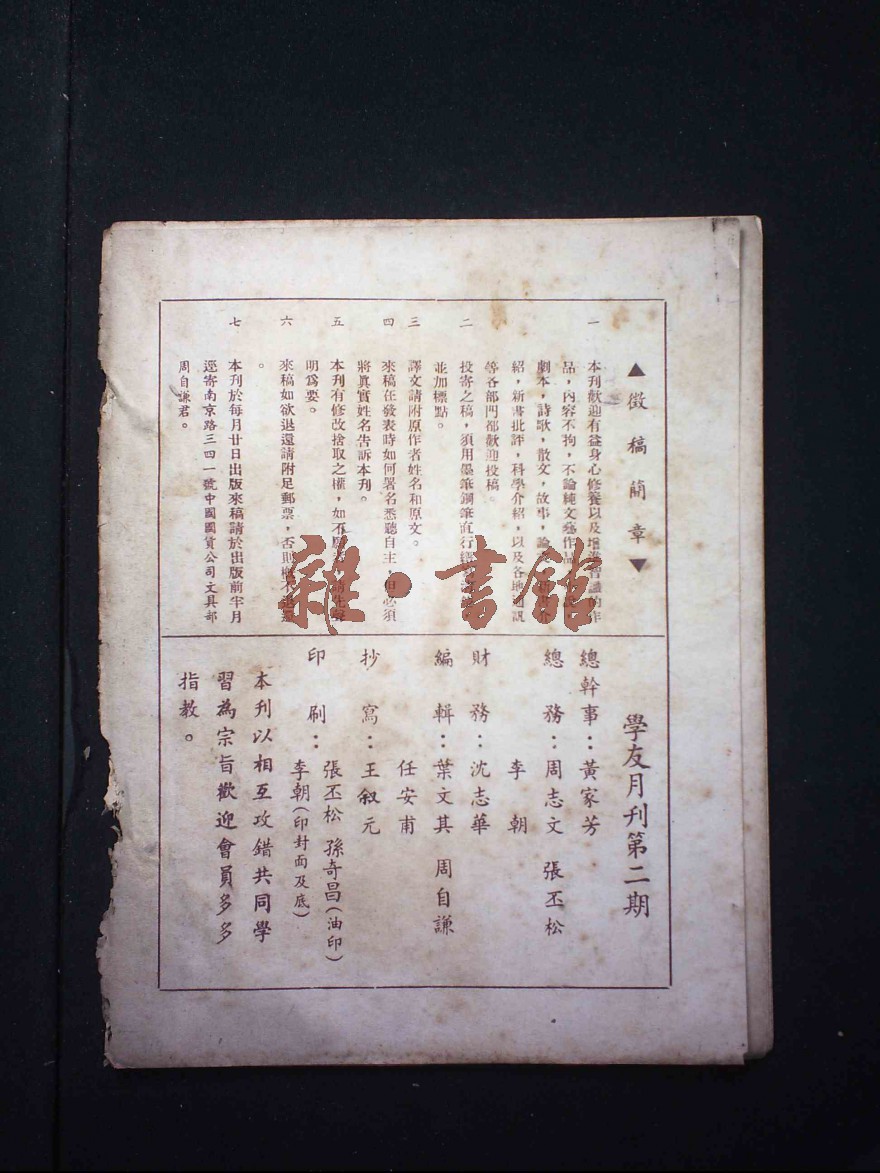 ▲徵稿簡章▼
一 本刊歡迎有益身心修養以及增進智識的作
品,內容不拘,不論純文藝作品
劇本,詩歌,散文,故事,論
紹,新書批評,科學介紹,以及各地通訊
等各部門都歡迎投稿。
二 投寄之稿,須用墨筆鋼筆直行繕寫
並加標點。
三 譯文請附原作者姓名和原文。
四 來稿在發表時如何署名悉聽自主,但必須
將眞實姓名告訴本刊。
五 本刊有修改捨取之權,如不願
明爲要。
六 來稿如欲退還請附足郵票,否則概不退還
。
七 本刊於每月廿日出版來稿請於出版前半月
逕寄南京路三四一號中國國貨公司文具部
周自謙君。
學友月刊第二期
總幹事:黃家芳
總務:周志文 張丕松
李朝
財務:沈志華
編輯:葉文其 周自謙
任安甫
抄寫:王叙元
印刷:張丕松 孫奇昌(油印)
李朝(印封面及底)
本刊以相互攻錯共同學
習為宗旨歡迎會員多多
指教。
雜·書館